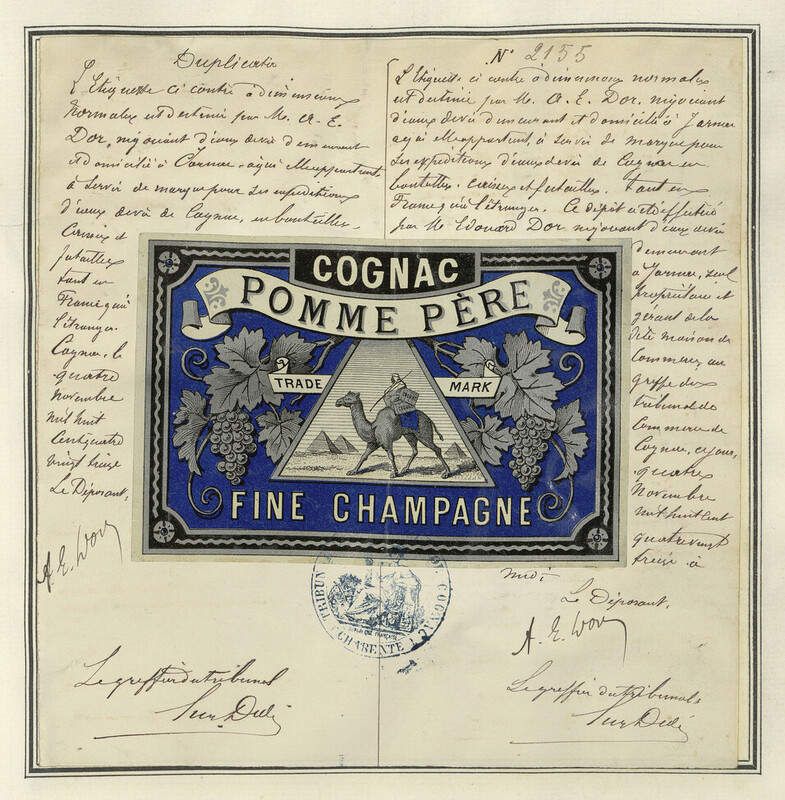 Duplicata
L'Etiquette ci contre à dimensions
Normales est destinée par M. A. E.
Dor, négociant d'eaux de vie demeurant
et domicilié à Jarnac, à qui elle appartient,
à servir de marque pour ses expéditions
d'eaux de vie de Cognac, en bouteilles,
Caisses et
futailles
tant en
France qu'à
l'étranger.
Cognac, le
quatre
Novembre
mil huit
cent quatre
vingt treize
Le Déposant,
A. E. Dor
Le greffier du tribunal
N° 2155
L'Etiquette ci contre à dimensions normales
est destinée par M. A. E. Dor, négociant
d'eaux de vie demeurant et domicilié à Jarnac
à qui elle appartient, à servir de marque pour
ses expéditions d'eaux de vie de Cognac en
bouteilles, caisses et futailles, tant en
France qu'à l'étranger. Ce dépôt a été effectué
par M. Edouard Dor négociant d'eaux de vie
demeurant
à Jarnac, seul
propriétaire et
gérant de la
dite maison de
Commerce au
greffe du
tribunal de
Commerce de
Cognac, ce jour,
quatre
Novembre
mil huit cent
quatre vingt
treize à
midi
Le Déposant,
A. E. Dor
Le greffier du tribunal
COGNAC
POMME PÈRE
TRADE MARK
FINE CHAMPAGNE
TRIBUN DE COGNAC
(CHARENTE)